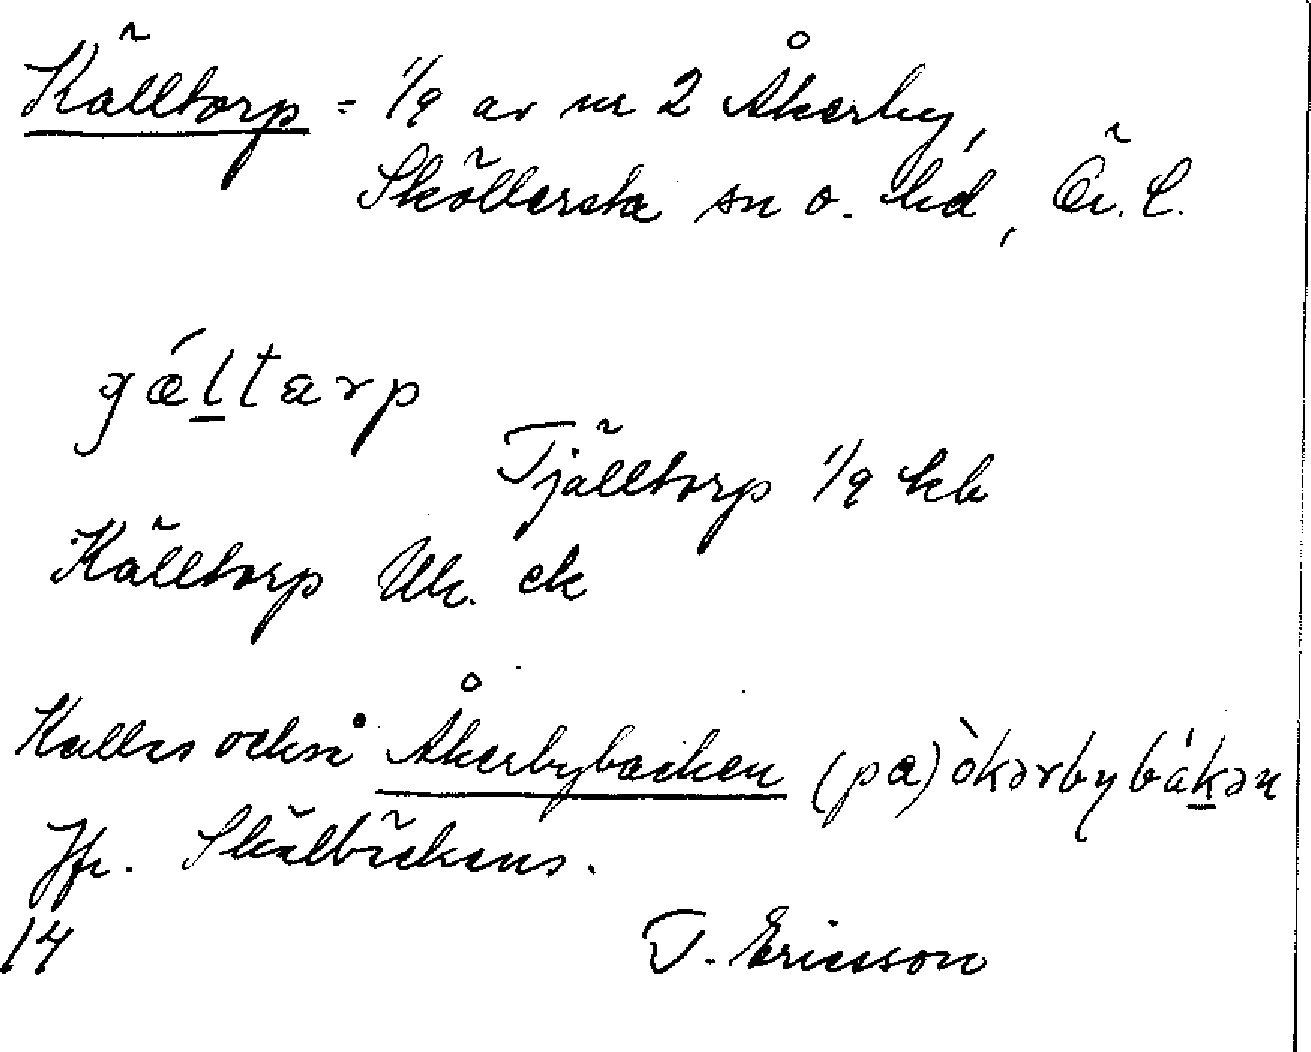 Källtorp = 1/9 av nr 2 Åkerby,
Sköllersta sn o. hd, Ör. l.
gǽltarp
Tjälltorp 1/9 kb
Källtorp Uk. ek
Kallas också Åkerbybacken (pa) òkərbybákən
Jfr.
14 T. Ericsson